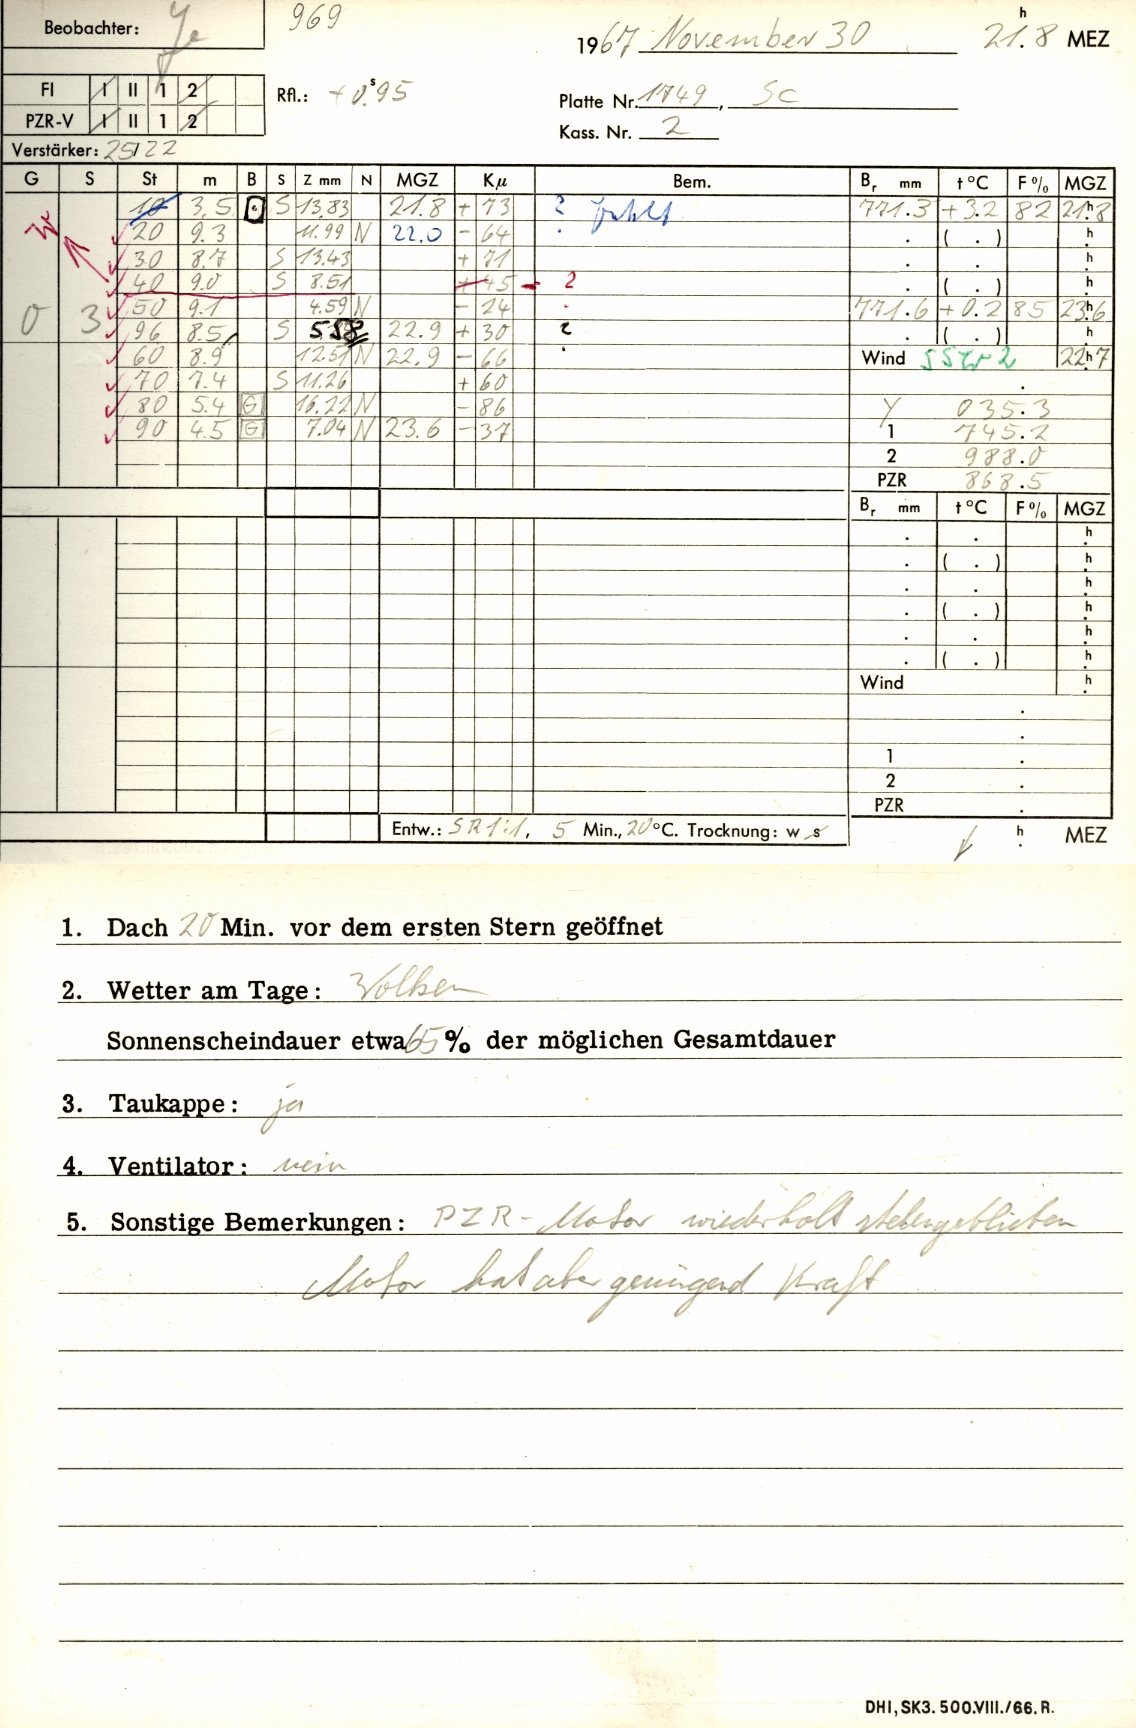 Beobachter: Je 969 1967 November 30 21.8 h MEZ
FI I II 1 2 Rfl.: +0.s95 Platte Nr. 1749, Sc
PZR-V I II 1 2 Kass. Nr. 2
Verstärker: 25/22
G S St m B S Z mm N MGZ Kµ Bem. Br mm t °C F % MGZ
10 3.5 S 13.83 21.8 + 73 ? fehlt 771.3 +3.2 82 21.h8
20 9.3 11.99 N 22.0 - 64 . ( . ) h
30 8.7 S 13.43 + 71 . . h
40 9.0 S 8.51 + 45 - ? . ( . ) h
0 3 50 9.1 4.59 N - 24 771.6 +0.2 85 23.h6
96 8.5 S 558 22.9 + 30 ? ( . ) h
60 8.9 12.51 N 22.9 - 66 Wind SSW 2 22.h7
70 7.4 S 11.26 + 60 .
80 5.4 G 16.22 N - 86 Y 035.3
90 4.5 G 7.04 N 23.6 - 37 1 745.2
2 988.0
PZR 868.5
Br mm t °C F % MGZ
. . h
. ( . ) h
. . h
. ( . ) h
. . h
. ( . ) h
Wind h
.
.
1 .
2 .
PZR .
Entw.: SR 1:1, 5 Min., 20 °C. Trocknung: w s h MEZ
1. Dach 20 Min. vor dem ersten Stern geöffnet
2. Wetter am Tage: Wolken
Sonnenscheindauer etwa 65 % der möglichen Gesamtdauer
3. Taukappe: ja
4. Ventilator: nein
5. Sonstige Bemerkungen: PZR-Motor wiederholt stehengeblieben
Motor hat aber genügend Kraft
DHI, SK3. 500.VIII./66. R.